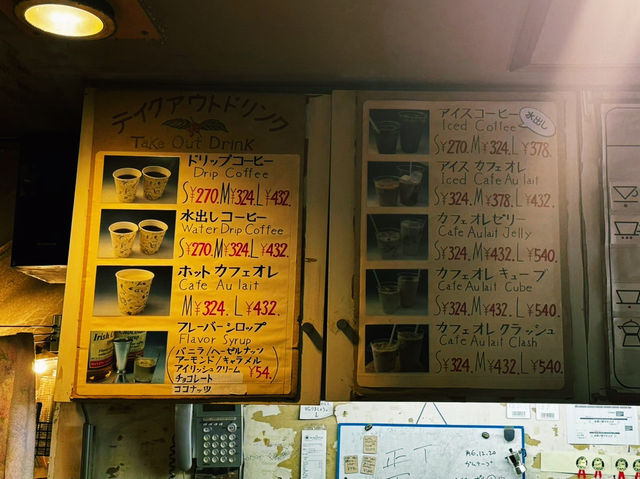 テイクアウトドリンク
Take Out Drink
ドリップコーヒー
Drip Coffee
S¥270. M¥324. L¥432.
水出しコーヒー
Water Drip Coffee
S¥270. M¥324. L¥432.
ホットカフェオレ
Cafe Au lait
M¥324. L¥432.
フレーバーシロップ
Flavor Syrup
バニラ/ヘーゼルナッツ
アーモンド/キャラメル
アイリッシュクリーム
チョコレート
ココナッツ
¥54.
Irish
アイスコーヒー
水出し
Iced Coffee
S¥270. M¥324. L¥378.
アイスカフェオレ
Iced Cafe Au lait
S¥324. M¥378. L¥432.
カフェオレゼリー
Cafe Au lait Jelly
S¥324. M¥432. L¥540.
カフェオレキューブ
Cafe Au lait Cube
S¥324. M¥432. L¥540.
カフェオレクラッシュ
Cafe Au lait Clash
S¥324. M¥432. L¥540.
正丁